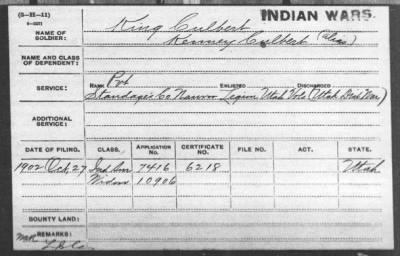 (3-22-11)
INDIAN WARS.
NAME OF SOLDIER:
King Culbert
Kenney Culbert (alias)
NAME AND CLASS OF DEPENDENT:
SERVICE:
RANK ENLISTED DISCHARGED
Pvt
Standage's Co Nauvoo Legion Utah Vols (Utah Ind War)
ADDITIONAL SERVICE:
DATE OF FILING. CLASS. APPLICATION NO. CERTIFICATE NO. FILE NO. ACT. STATE.
1902 Oct, 27 Ind Sur 7416 6218 Utah
Widow 10906
BOUNTY LAND:
REMARKS: